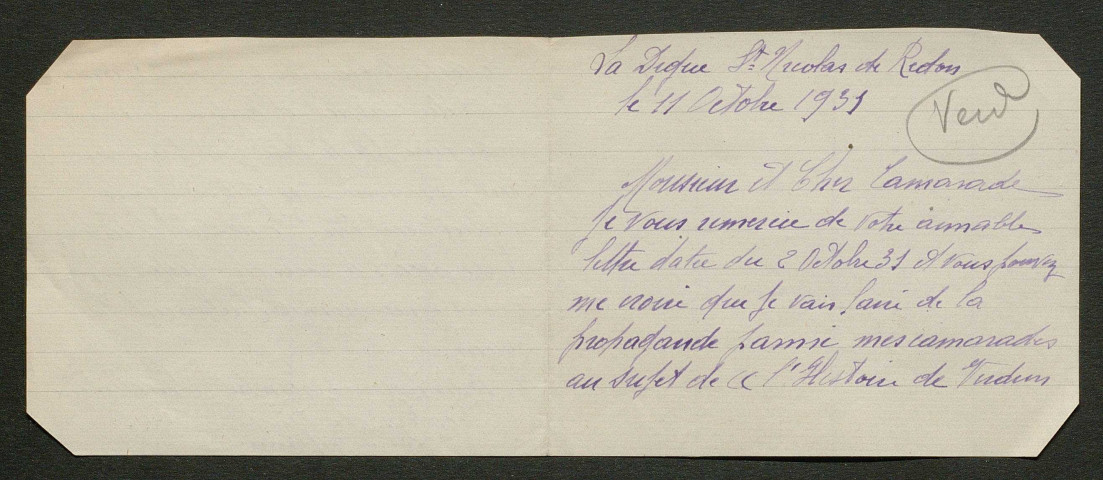 La Digue St Nicolas de Redon
le 11 Octobre 1931
Monsieur et Cher Camarade
Je vous remercie de votre aimables
lettre datée du 2 Octobre 31 et vous pouvez
me croire que je vais faire de la
propagande parmi mes camarades
au sujet de « l'Histoire de Verdun